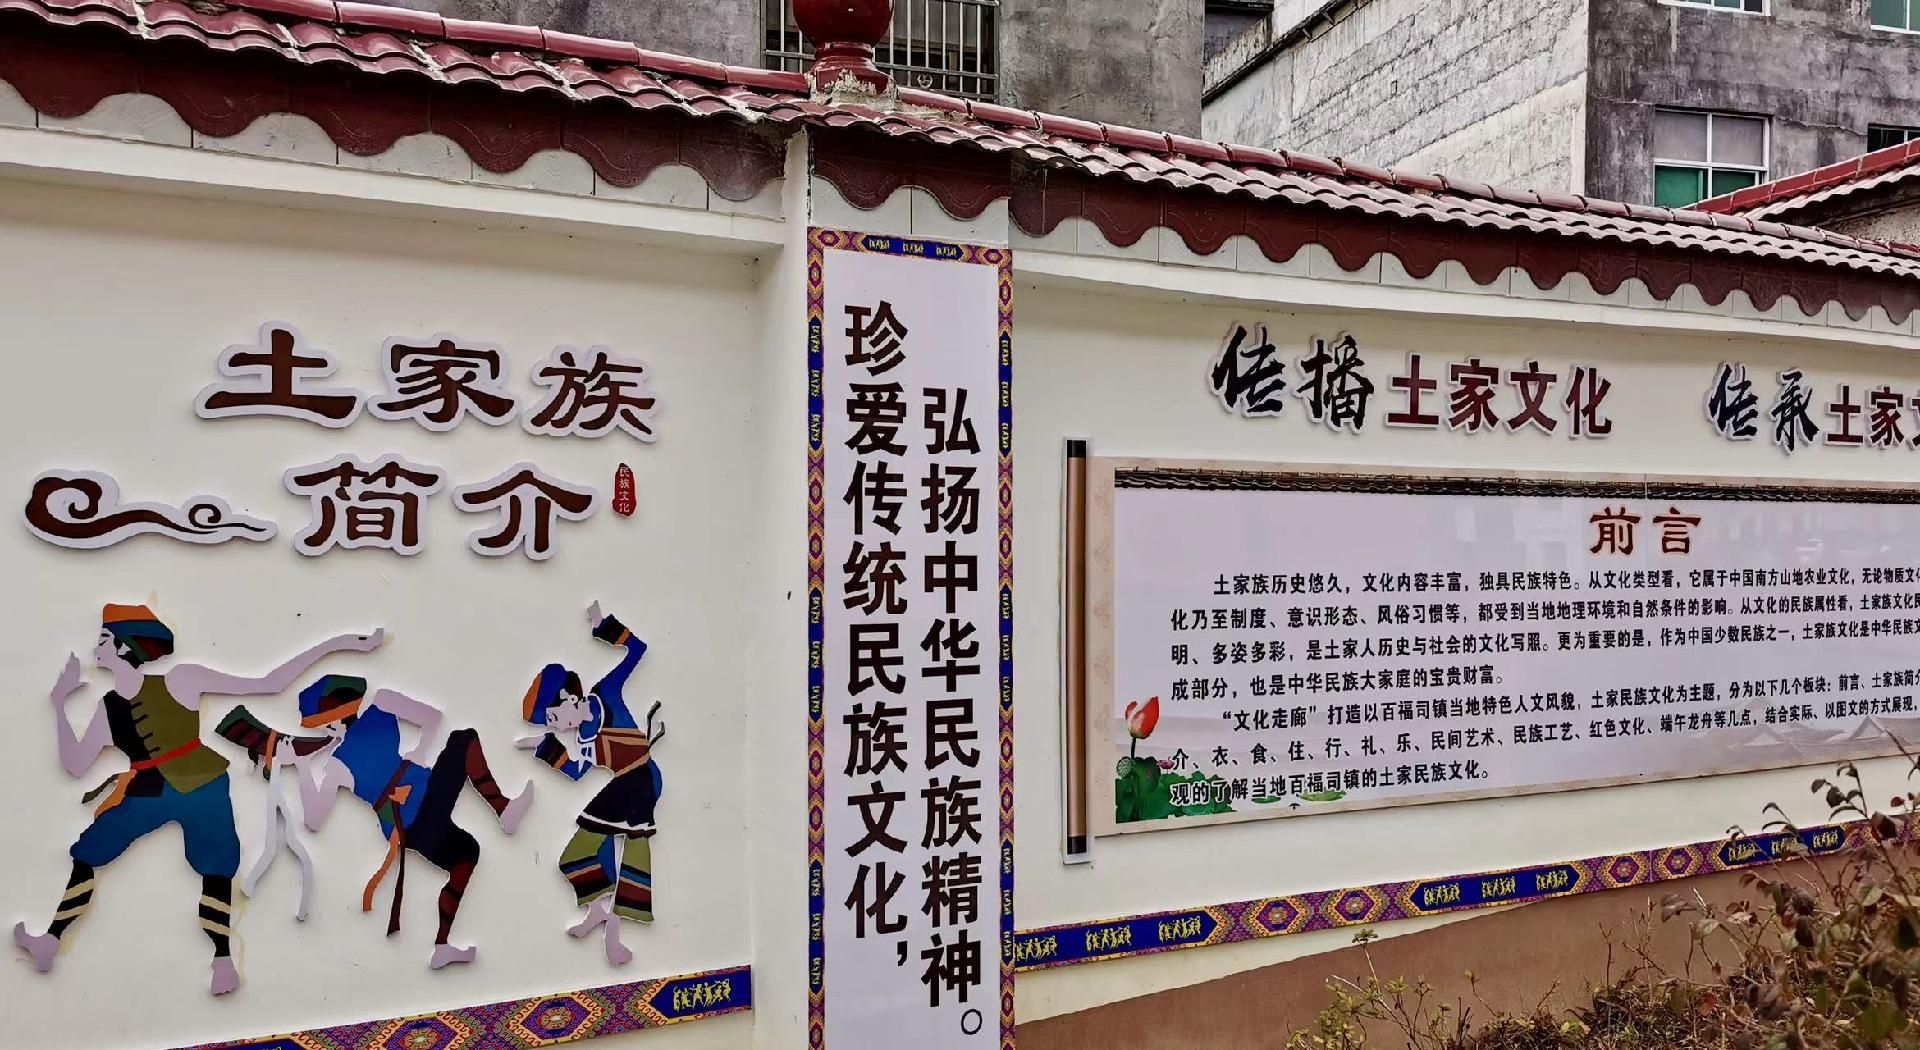 土家族
简介
民族文化
珍爱传统民族文化，
弘扬中华民族精神。
传播土家文化
传承土家文
前言
土家族历史悠久，文化内容丰富，独具民族特色。从文化类型看，它属于中国南方山地农业文化，无论物质文化
化乃至制度、意识形态、风俗习惯等，都受到当地地理环境和自然条件的影响。从文化的民族属性看，土家族文化
明、多姿多彩，是土家人历史与社会的文化写照。更为重要的是，作为中国少数民族之一，土家族文化是中华民族文
成部分，也是中华民族大家庭的宝贵财富。
“文化走廊”打造以百福司镇当地特色人文风貌，土家民族文化为主题，分为以下几个板块：前言、土家族简介
介、衣、食、住、行、礼、乐、民间艺术、民族工艺、红色文化、端午龙舟等几点，结合实际、以图文的方式展现，
观的了解当地百福司镇的土家民族文化。